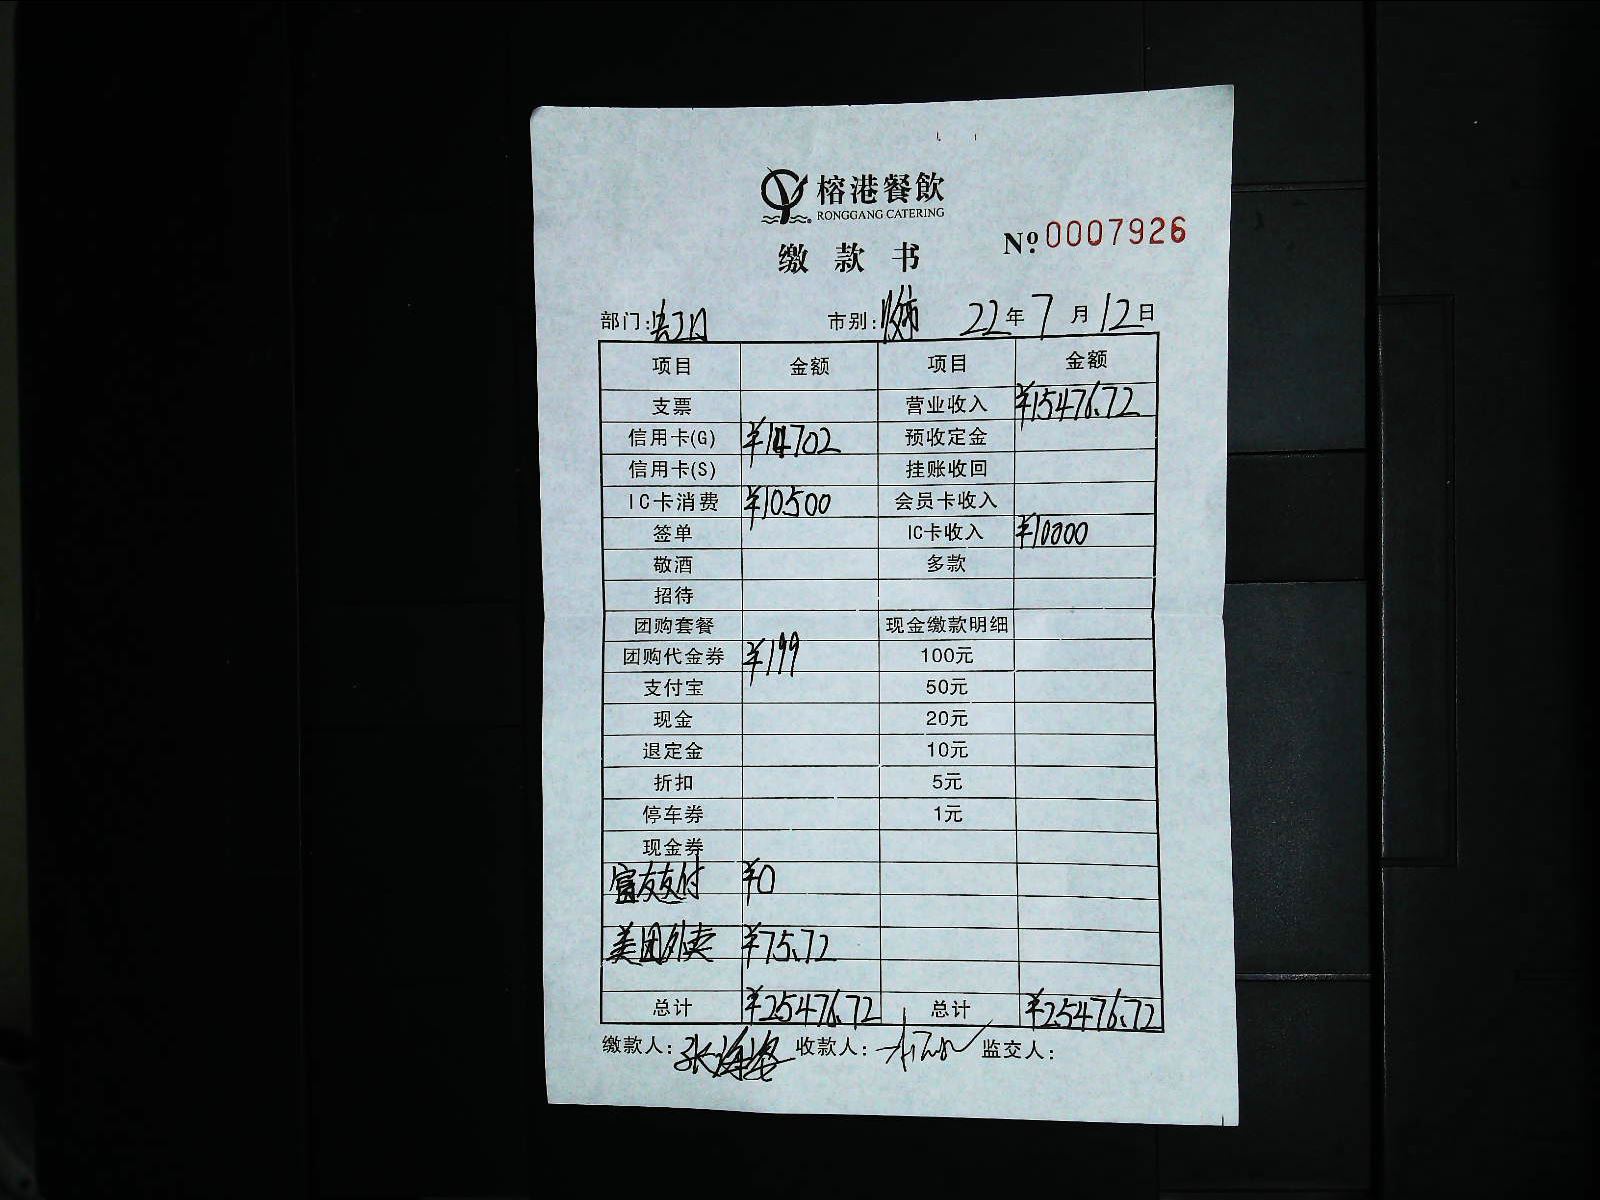 榕港餐飲
RONGGANG CATERING
缴款书 №0007926
部门: 市别: 22年7月12日
项目 金额 项目 金额
支票 营业收入 ¥15476.72
信用卡(G) ¥14702 预收定金
信用卡(S) 挂账收回
IC卡消费 ¥10500 会员卡收入
签单 IC卡收入 ¥10000
敬酒 多款
招待
团购套餐 现金缴款明细
团购代金券 ¥199 100元
支付宝 50元
现金 20元
退定金 10元
折扣 5元
停车券 1元
现金券
富友支付 ¥0
美团外卖 ¥75.72
总计 ¥25476.72 总计 ¥25476.72
缴款人: 张海 收款人: 监交人: